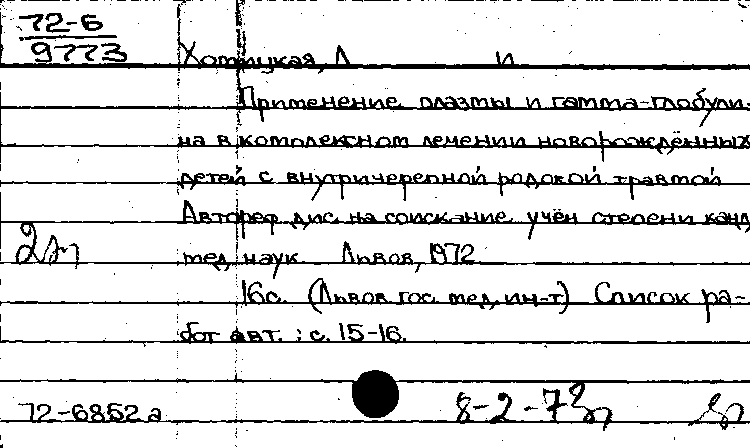 72-6
9773
Хомицкая, Л И
Применение плазмы и гамма-глобули-
на в комплексном лечении новорождённых
детей с внутричерепной родовой травмой
Автореф дис. на соискание учён степени канд
мед наук Львов, 1972
16с. (Львов гос мед. ин-т) Список ра-
бот авт. : с. 15-16.
72-6852а
8-2-72